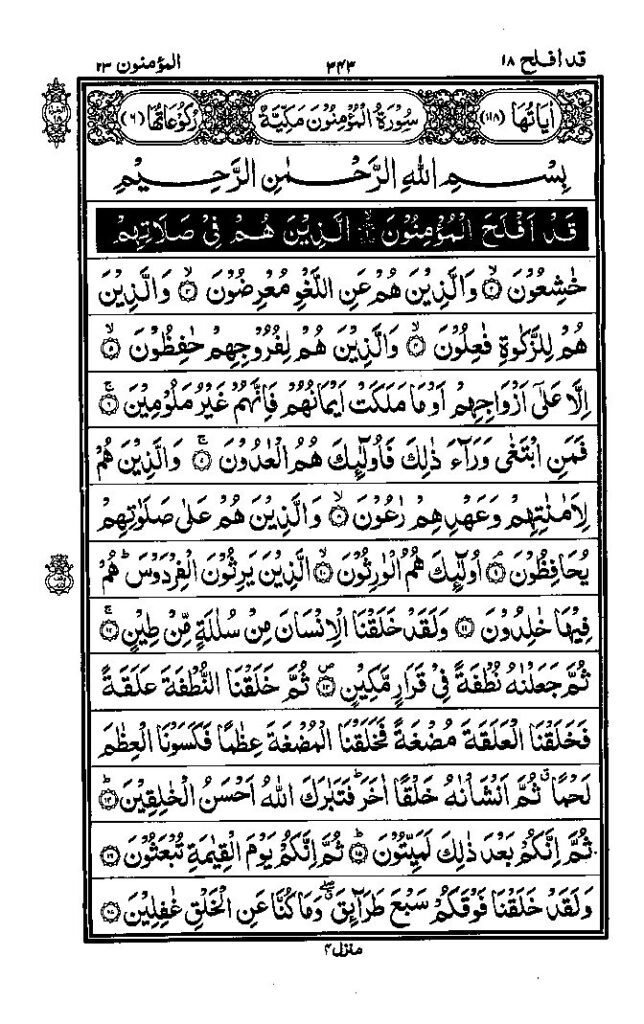 قد افلح ١٨ ٣٤٣ المؤمنون ٢٣
اٰيَاتُهَا (١١٨) سُوْرَةُ الْمُؤْمِنُوْنَ مَكِّيَّةٌ رُكُوْعَاتُهَا (٦)
بِسْمِ اللهِ الرَّحْمٰنِ الرَّحِيْمِ
قَدْ اَفْلَحَ الْمُؤْمِنُوْنَ ۙ‏﴿١﴾ الَّذِيْنَ هُمْ فِيْ صَلَاتِهِمْ
خٰشِعُوْنَ ۙ‏﴿٢﴾ وَالَّذِيْنَ هُمْ عَنِ اللَّغْوِ مُعْرِضُوْنَ ۙ‏﴿٣﴾ وَالَّذِيْنَ
هُمْ لِلزَّكٰوةِ فٰعِلُوْنَ ۙ‏﴿٤﴾ وَالَّذِيْنَ هُمْ لِفُرُوْجِهِمْ حٰفِظُوْنَ ۙ‏﴿٥﴾
اِلَّا عَلٰۤى اَزْوَاجِهِمْ اَوْ مَا مَلَكَتْ اَيْمَانُهُمْ فَاِنَّهُمْ غَيْرُ مَلُوْمِيْنَ ۚ‏﴿٦﴾
فَمَنِ ابْتَغٰى وَرَآءَ ذٰلِكَ فَاُولٰٓئِكَ هُمُ الْعٰدُوْنَ ۚ‏﴿٧﴾ وَالَّذِيْنَ هُمْ
لِاَمٰنٰتِهِمْ وَعَهْدِهِمْ رٰعُوْنَ ۙ‏﴿٨﴾ وَالَّذِيْنَ هُمْ عَلٰى صَلَوٰتِهِمْ
يُحَافِظُوْنَ ۘ‏﴿٩﴾ اُولٰٓئِكَ هُمُ الْوٰرِثُوْنَ ۙ‏﴿١٠﴾ الَّذِيْنَ يَرِثُوْنَ الْفِرْدَوْسَ ؕ هُمْ
فِيْهَا خٰلِدُوْنَ ﴿١١﴾ وَلَقَدْ خَلَقْنَا الْاِنْسَانَ مِنْ سُلٰلَةٍ مِّنْ طِيْنٍ ۚ‏﴿١٢﴾
ثُمَّ جَعَلْنٰهُ نُطْفَةً فِيْ قَرَارٍ مَّكِيْنٍ ۪‏﴿١٣﴾ ثُمَّ خَلَقْنَا النُّطْفَةَ عَلَقَةً
فَخَلَقْنَا الْعَلَقَةَ مُضْغَةً فَخَلَقْنَا الْمُضْغَةَ عِظٰمًا فَكَسَوْنَا الْعِظٰمَ
لَحْمًا ۗ ثُمَّ اَنْشَاْنٰهُ خَلْقًا اٰخَرَ ؕ فَتَبٰرَكَ اللهُ اَحْسَنُ الْخٰلِقِيْنَ ؕ‏﴿١٤﴾
ثُمَّ اِنَّكُمْ بَعْدَ ذٰلِكَ لَمَيِّتُوْنَ ؕ‏﴿١٥﴾ ثُمَّ اِنَّكُمْ يَوْمَ الْقِيٰمَةِ تُبْعَثُوْنَ ﴿١٦﴾
وَلَقَدْ خَلَقْنَا فَوْقَكُمْ سَبْعَ طَرَآئِقَ ۖ وَمَا كُنَّا عَنِ الْخَلْقِ غٰفِلِيْنَ ﴿١٧﴾
منزل ٤